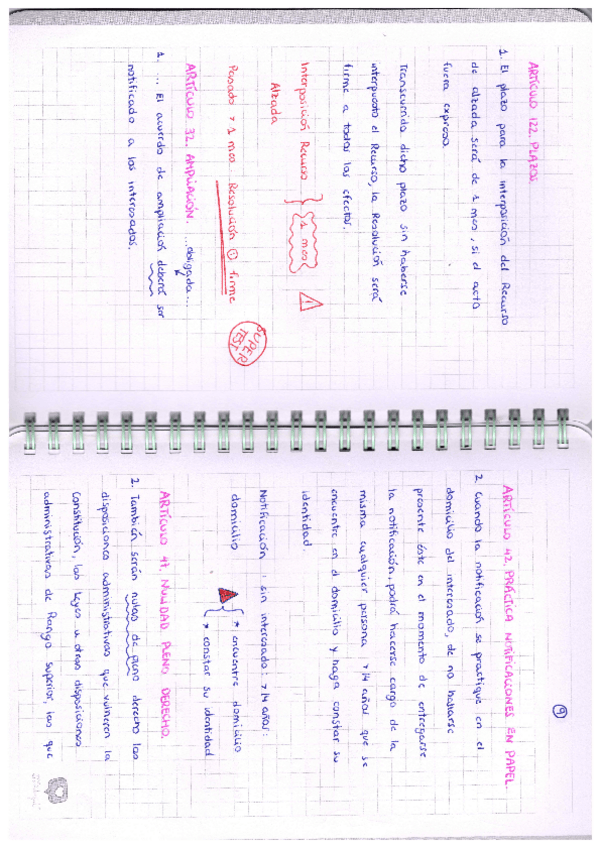 ARTÍCULO 122. PLAZOS.
1. El plazo para la interposición del Recurso
de alzada será de 1 mes, si el acto
fuera expreso.
Transcurrido dicho plazo sin haberse
interpuesto el Recurso, la Resolución será
firme a todos los efectos.
Interposición Recurso
Alzada
1 mes
Pasado > 1 mes Resolución firme
SUPER
TEST
ARTÍCULO 32. AMPLIACIÓN. ...obligada...
1. ... El acuerdo de ampliación deberá ser
notificado a los interesados.
9
ARTÍCULO 42. PRÁCTICA NOTIFICACIONES EN PAPEL.
2. Cuando la notificación se practique en el
domicilio del interesado, de no hallarse
presente éste en el momento de entregarse
la notificación, podrá hacerse cargo de la
misma cualquier persona >14 años que se
encuentre en el domicilio y haga constar su
identidad.
Notificación : sin interesado: >14 años:
domicilio * encuentre domicilio
* constar su identidad
ARTÍCULO 47. NULIDAD PLENO DERECHO.
2. También serán nulas de pleno derecho las
disposiciones administrativas que vulneren la
Constitución, las leyes u otras disposiciones
administrativas de Rango superior, las que